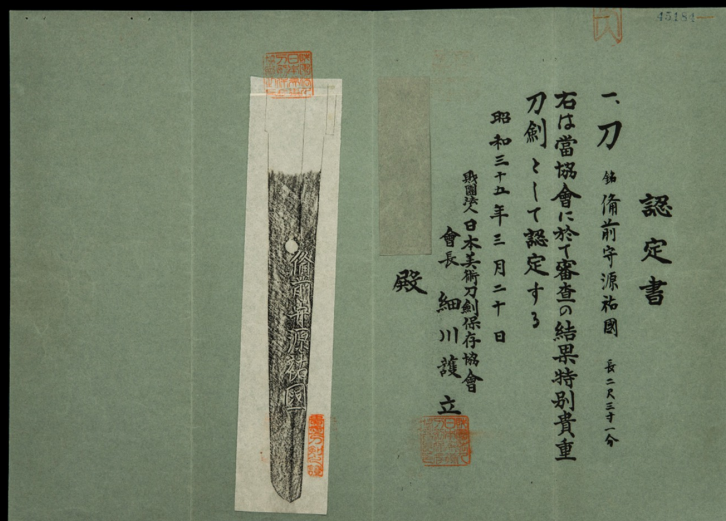 45184
認定書
一、刀 銘 備前守源祐國 長二尺三寸一分
右は當協會に於て審査の結果特別貴重
刀剣として認定する
昭和三十五年三月二十日
財團法人 日本美術刀剣保存協會
會長 細川護立
殿
備前守源祐國